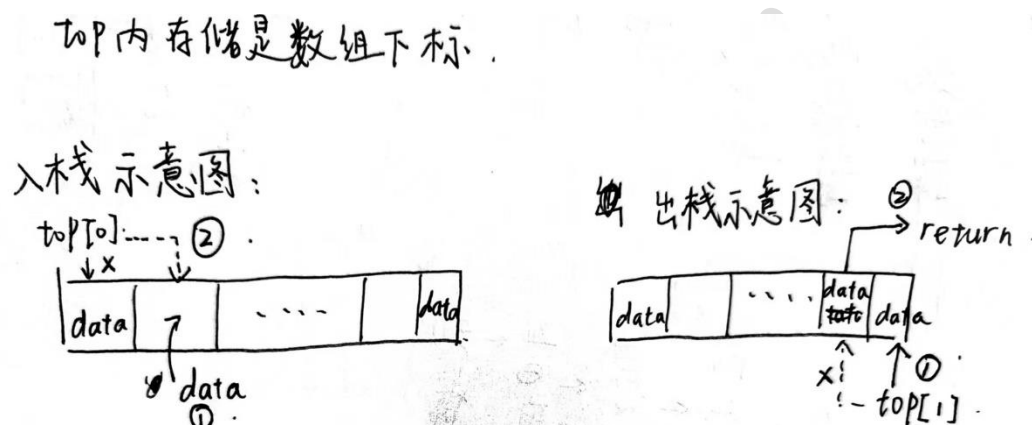 top内存储是数组下标.
入栈示意图:
top[0] ②.
x
data .... data
data
①.
出栈示意图:
② return
data .... data data
x ①.
top[1].